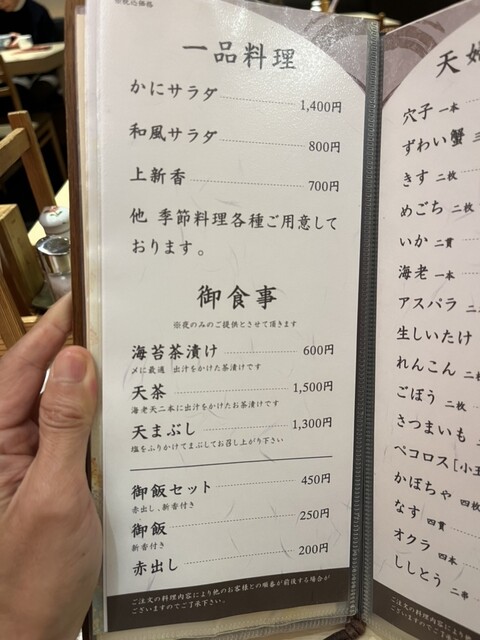 ※税込価格
一品料理
かにサラダ 1,400円
和風サラダ 800円
上新香 700円
他 季節料理各種ご用意して
おります。
御食事
※夜のみのご提供とさせて頂きます
海苔茶漬け 600円
〆に最適 出汁をかけた茶漬けです
天茶 1,500円
海老天二本に出汁をかけたお茶漬けです
天まぶし 1,300円
塩をふりかけてまぶしてお召し上がり下さい
御飯セット 450円
赤出し、新香付き
御飯 250円
新香付き
赤出し 200円
ご注文の料理内容により他のお客様との順番が前後する場合が
ございますのでご了承下さい。
天
穴子 一本
ずわい蟹
きす 二枚
めごち 二枚
いか 二貫
海老 一本
アスパラ
生しいたけ
れんこん 二枚
ごぼう 二枚
さつまいも
ペコロス[小玉
かぼちゃ 四枚
なす 四貫
オクラ 四本
ししとう 二串
ご注文の料理内容によ
ございますのでご了承